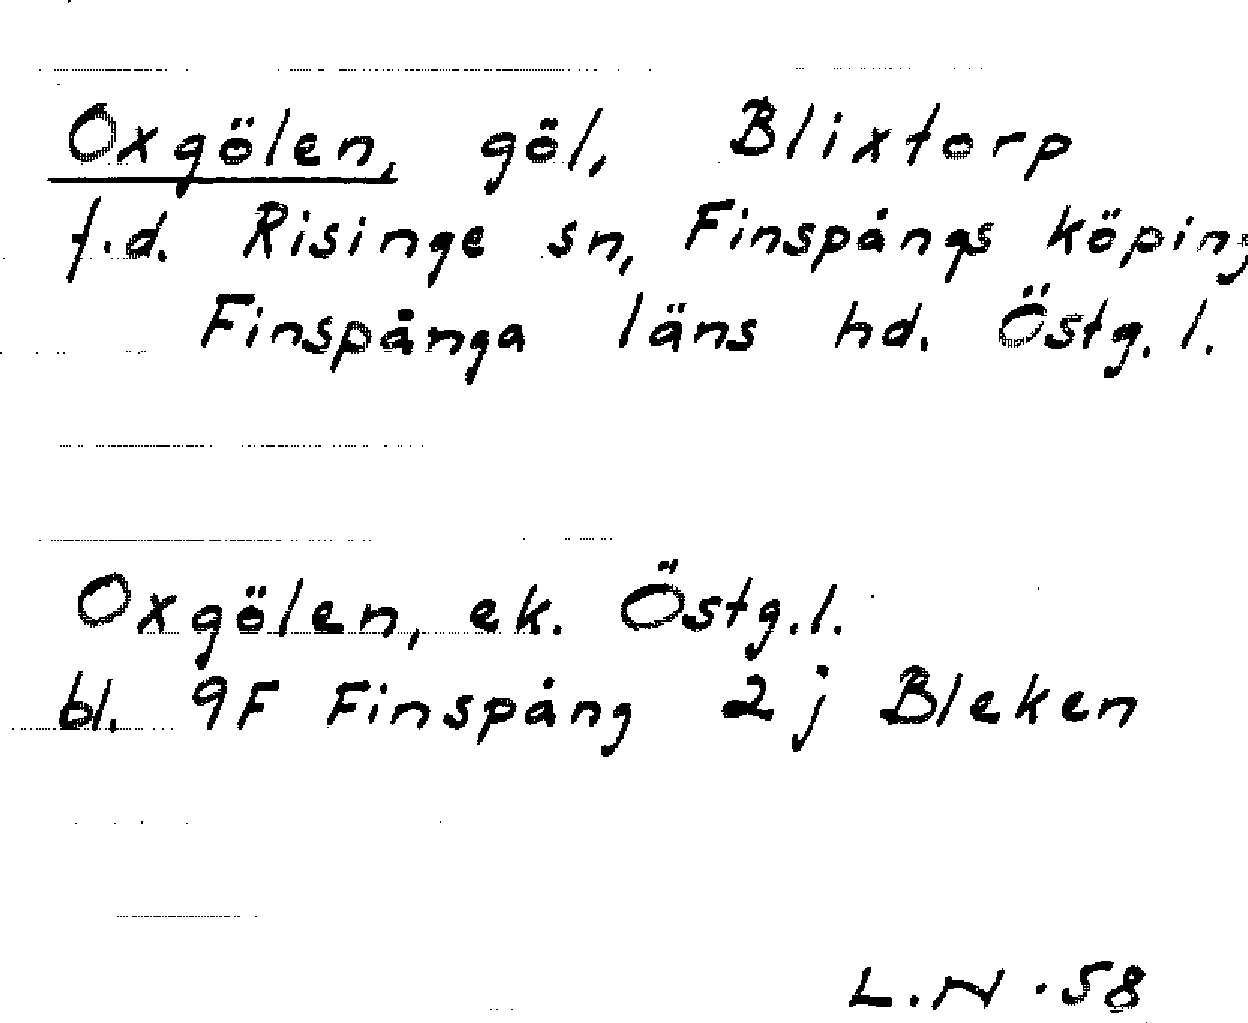 Oxgölen, göl, Blixtorp
f.d. Risinge sn, Finspångs köping
Finspånga läns hd. Östg. l.
Oxgölen, ek. Östg. l.
bl. 9F Finspång 2 j Bleken
L.N. 58